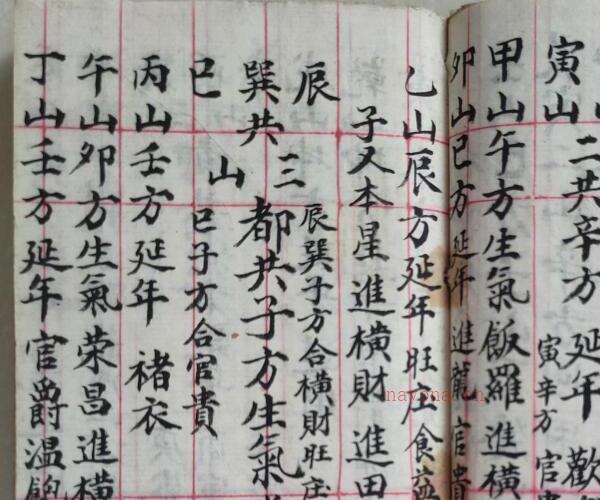 寅山
二共辛方延年歡
寅辛方官
甲山午方生氣飯羅進橫
卯山巳方延年進龍官貴
乙山辰方延年旺庄食
子又本星進橫財進田
辰巽巳三山共
辰巽子方合橫財旺庄
都共子方生氣
巳子方合官貴
丙山壬方延年 褚衣
午山卯方生氣荣昌進橫
丁山壬方延年官爵温飽